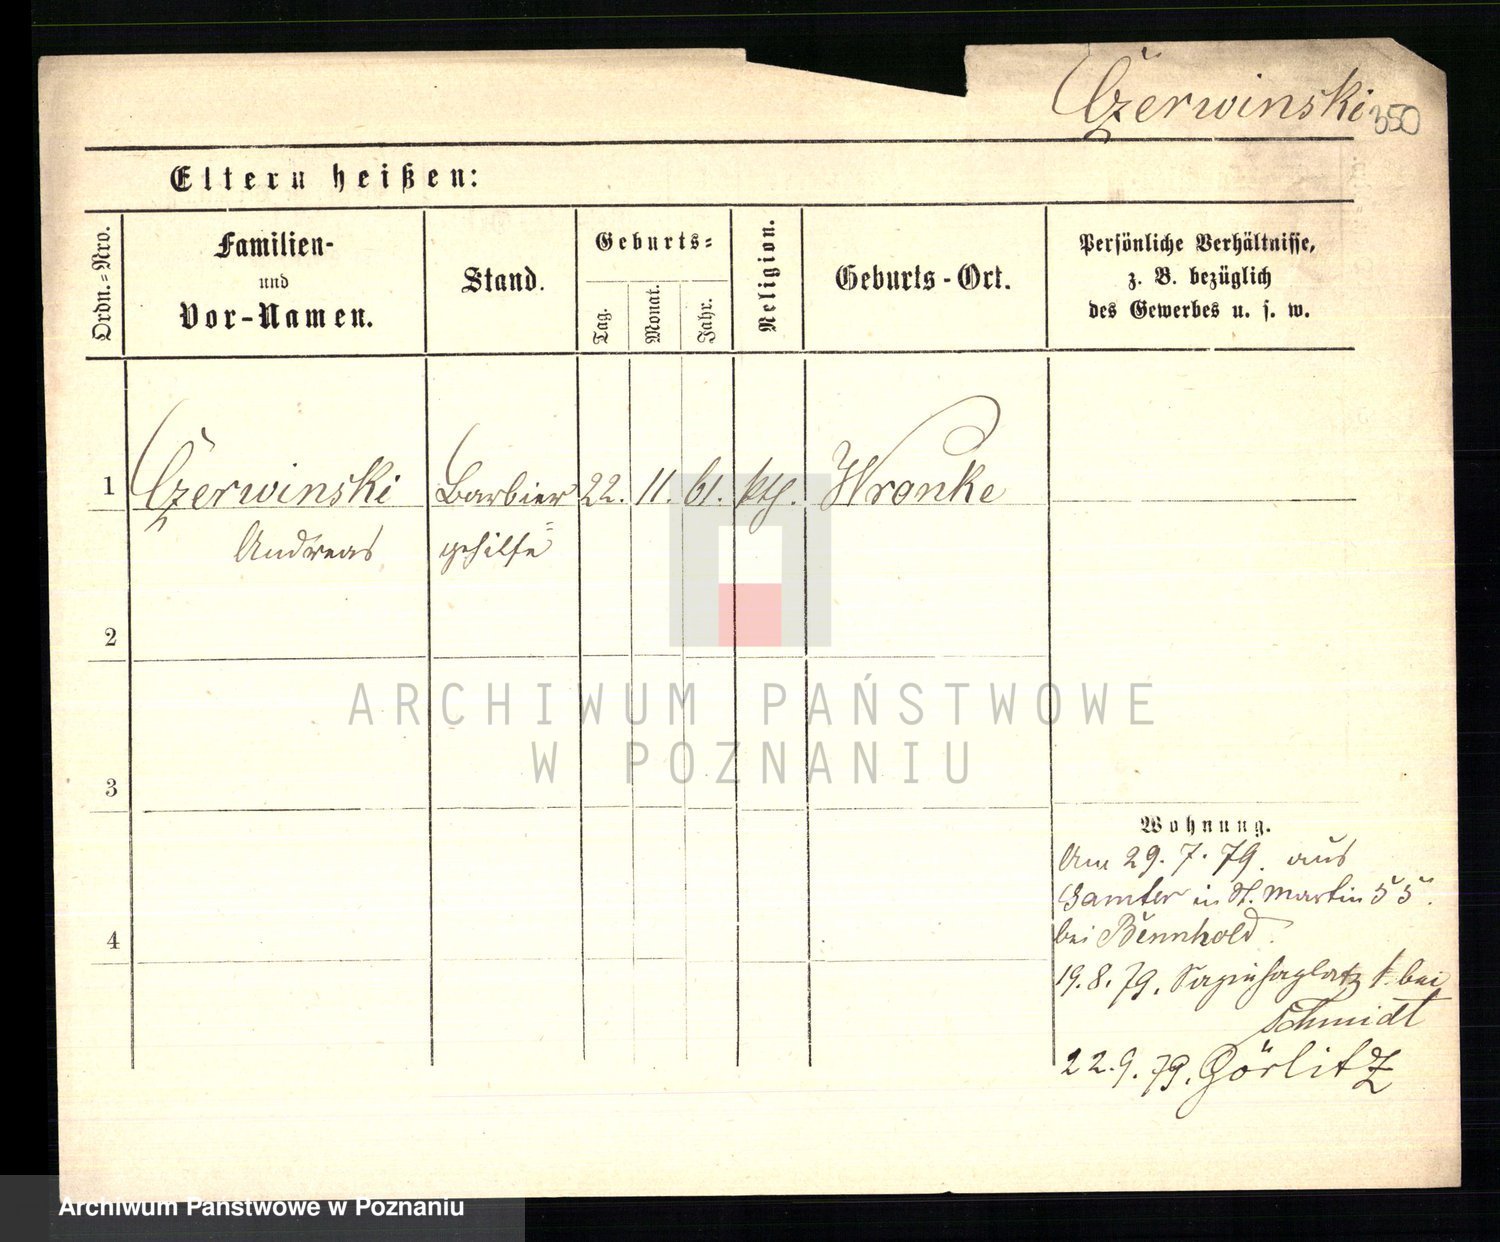 Czerwinski
350
Eltern heißen:
Ordn.=Nro.
Familien-
und
Vor-Namen.
Stand.
Geburts=
Tag.
Monat.
Jahr.
Religion.
Geburts-Ort.
Persönliche Verhältnisse,
z. B. bezüglich
des Gewerbes u. s. w.
1 Czerwinski Barbier 22. 11. 61. kth. Wronke
Andreas gehilfe
2
ARCHIWUM PAŃSTWOWE
W POZNANIU
3
Wohnung.
Am 29. 7. 79. aus
Samter in St. Martin 55.
bei Bennhold.
4
19. 8. 79. Sapiehaplatz 1. bei
Schmidt
22. 9. 79. Görlitz
Archiwum Państwowe w Poznaniu